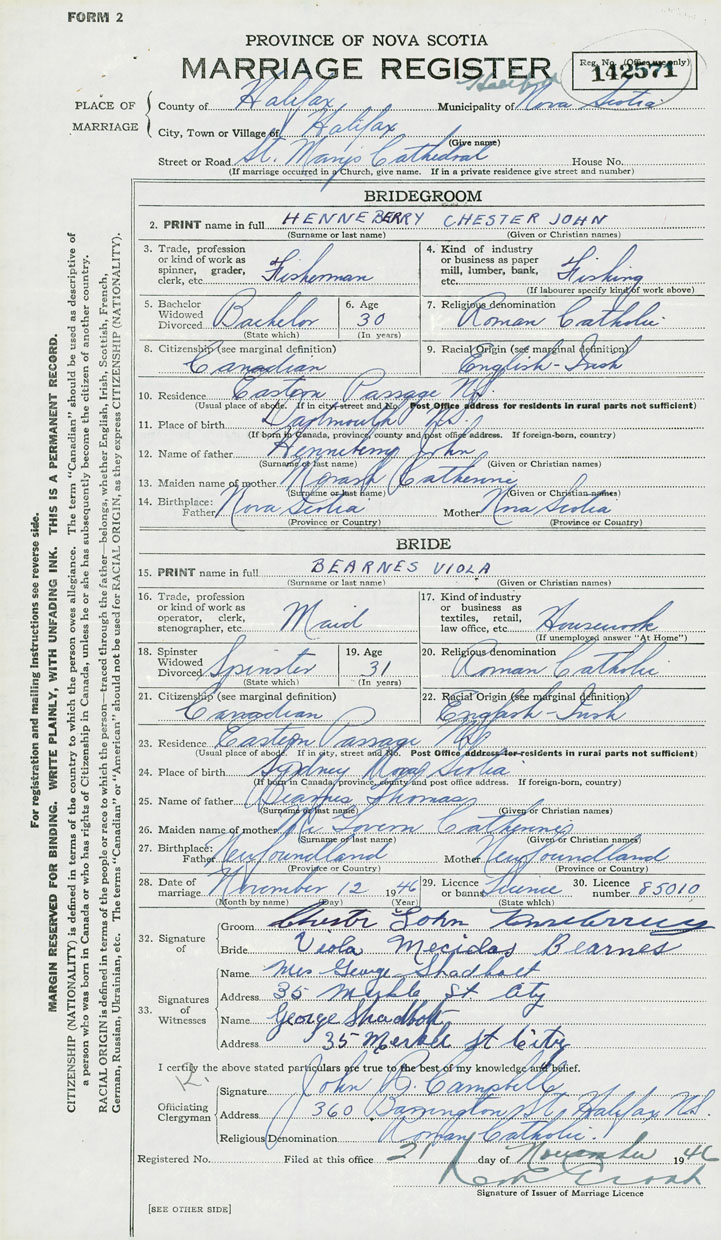 FORM 2
PROVINCE OF NOVA SCOTIA
MARRIAGE REGISTER
Reg. No. (Office use only)
142571
PLACE OF MARRIAGE
Halifax
County of Halifax Municipality of Nova Scotia
City, Town or Village of Halifax
(Give name)
Street or Road St. Mary's Cathedral House No.
(If marriage occurred in a Church, give name. If in a private residence give street and number)
BRIDEGROOM
2. PRINT name in full HENNEBERRY CHESTER JOHN
(Surname or last name) (Given or Christian names)
3. Trade, profession or kind of work as spinner, grader, clerk, etc. Fisherman
4. Kind of industry or business as paper mill, lumber, bank, etc. Fishing
(If labourer specify kind of work above)
5. Bachelor Widowed Divorced Bachelor (State which)
6. Age 30 (In years)
7. Religious denomination Roman Catholic
8. Citizenship (see marginal definition) Canadian
9. Racial Origin (see marginal definition) English-Irish
10. Residence Eastern Passage N.S.
(Usual place of abode. If in city street and No. Post Office address for residents in rural parts not sufficient)
11. Place of birth Dartmouth N.S.
(If born in Canada, province, county and post office address. If foreign-born, country)
12. Name of father Henneberry John
(Surname or last name) (Given or Christian names)
13. Maiden name of mother Catherine
(Surname or last name) (Given or Christian names)
14. Birthplace: Father Nova Scotia Mother Nova Scotia
(Province or Country) (Province or Country)
BRIDE
15. PRINT name in full BEARNES VIOLA
(Surname or last name) (Given or Christian names)
16. Trade, profession or kind of work as operator, clerk, stenographer, etc. Maid
17. Kind of industry or business as textiles, retail, law office, etc. Housework
(If unemployed answer "At Home")
18. Spinster Widowed Divorced Spinster (State which)
19. Age 31 (In years)
20. Religious denomination Roman Catholic
21. Citizenship (see marginal definition) Canadian
22. Racial Origin (see marginal definition) English-Irish
23. Residence Eastern Passage N.S.
(Usual place of abode. If in city, street and No. Post Office address for residents in rural parts not sufficient)
24. Place of birth Sydney Nova Scotia
(If born in Canada, province, county and post office address. If foreign-born, country)
25. Name of father Bearnes Thomas
(Surname or last name) (Given or Christian names)
26. Maiden name of mother Catherine
(Surname or last name) (Given or Christian names)
27. Birthplace: Father Newfoundland Mother Newfoundland
(Province or Country) (Province or Country)
28. Date of marriage November 12 1946
(Month by name) (Day) (Year)
29. Licence or banns Licence (State which)
30. Licence number 85010
32. Signature of
Groom Chester John Henneberry
Bride Viola Mecidas Bearnes
33. Signatures of Witnesses
Name Mrs George Shadbolt
Address 35 St City
Name George Shadbolt
Address 35 St City
I certify the above stated particulars are true to the best of my knowledge and belief.
Officiating Clergyman
Signature John B. Campbell
Address 360 Barrington St., Halifax N.S.
Religious Denomination Roman Catholic.
Registered No. Filed at this office 21 day of November 1946
Signature of Issuer of Marriage Licence
[SEE OTHER SIDE]
For registration and mailing instructions see reverse side.
MARGIN RESERVED FOR BINDING. WRITE PLAINLY, WITH UNFADING INK. THIS IS A PERMANENT RECORD.
CITIZENSHIP (NATIONALITY) is defined in terms of the country to which the person owes allegiance. The term "Canadian" should be used as descriptive of
a person who was born in Canada or who has rights of Citizenship in Canada, unless he or she has subsequently become the citizen of another country.
RACIAL ORIGIN is defined in terms of the people or race to which the person—traced through the father—belongs, whether English, Irish, Scottish, French,
German, Russian, Ukrainian, etc. The terms "Canadian" or "American" should not be used for RACIAL ORIGIN, as they express CITIZENSHIP (NATIONALITY).